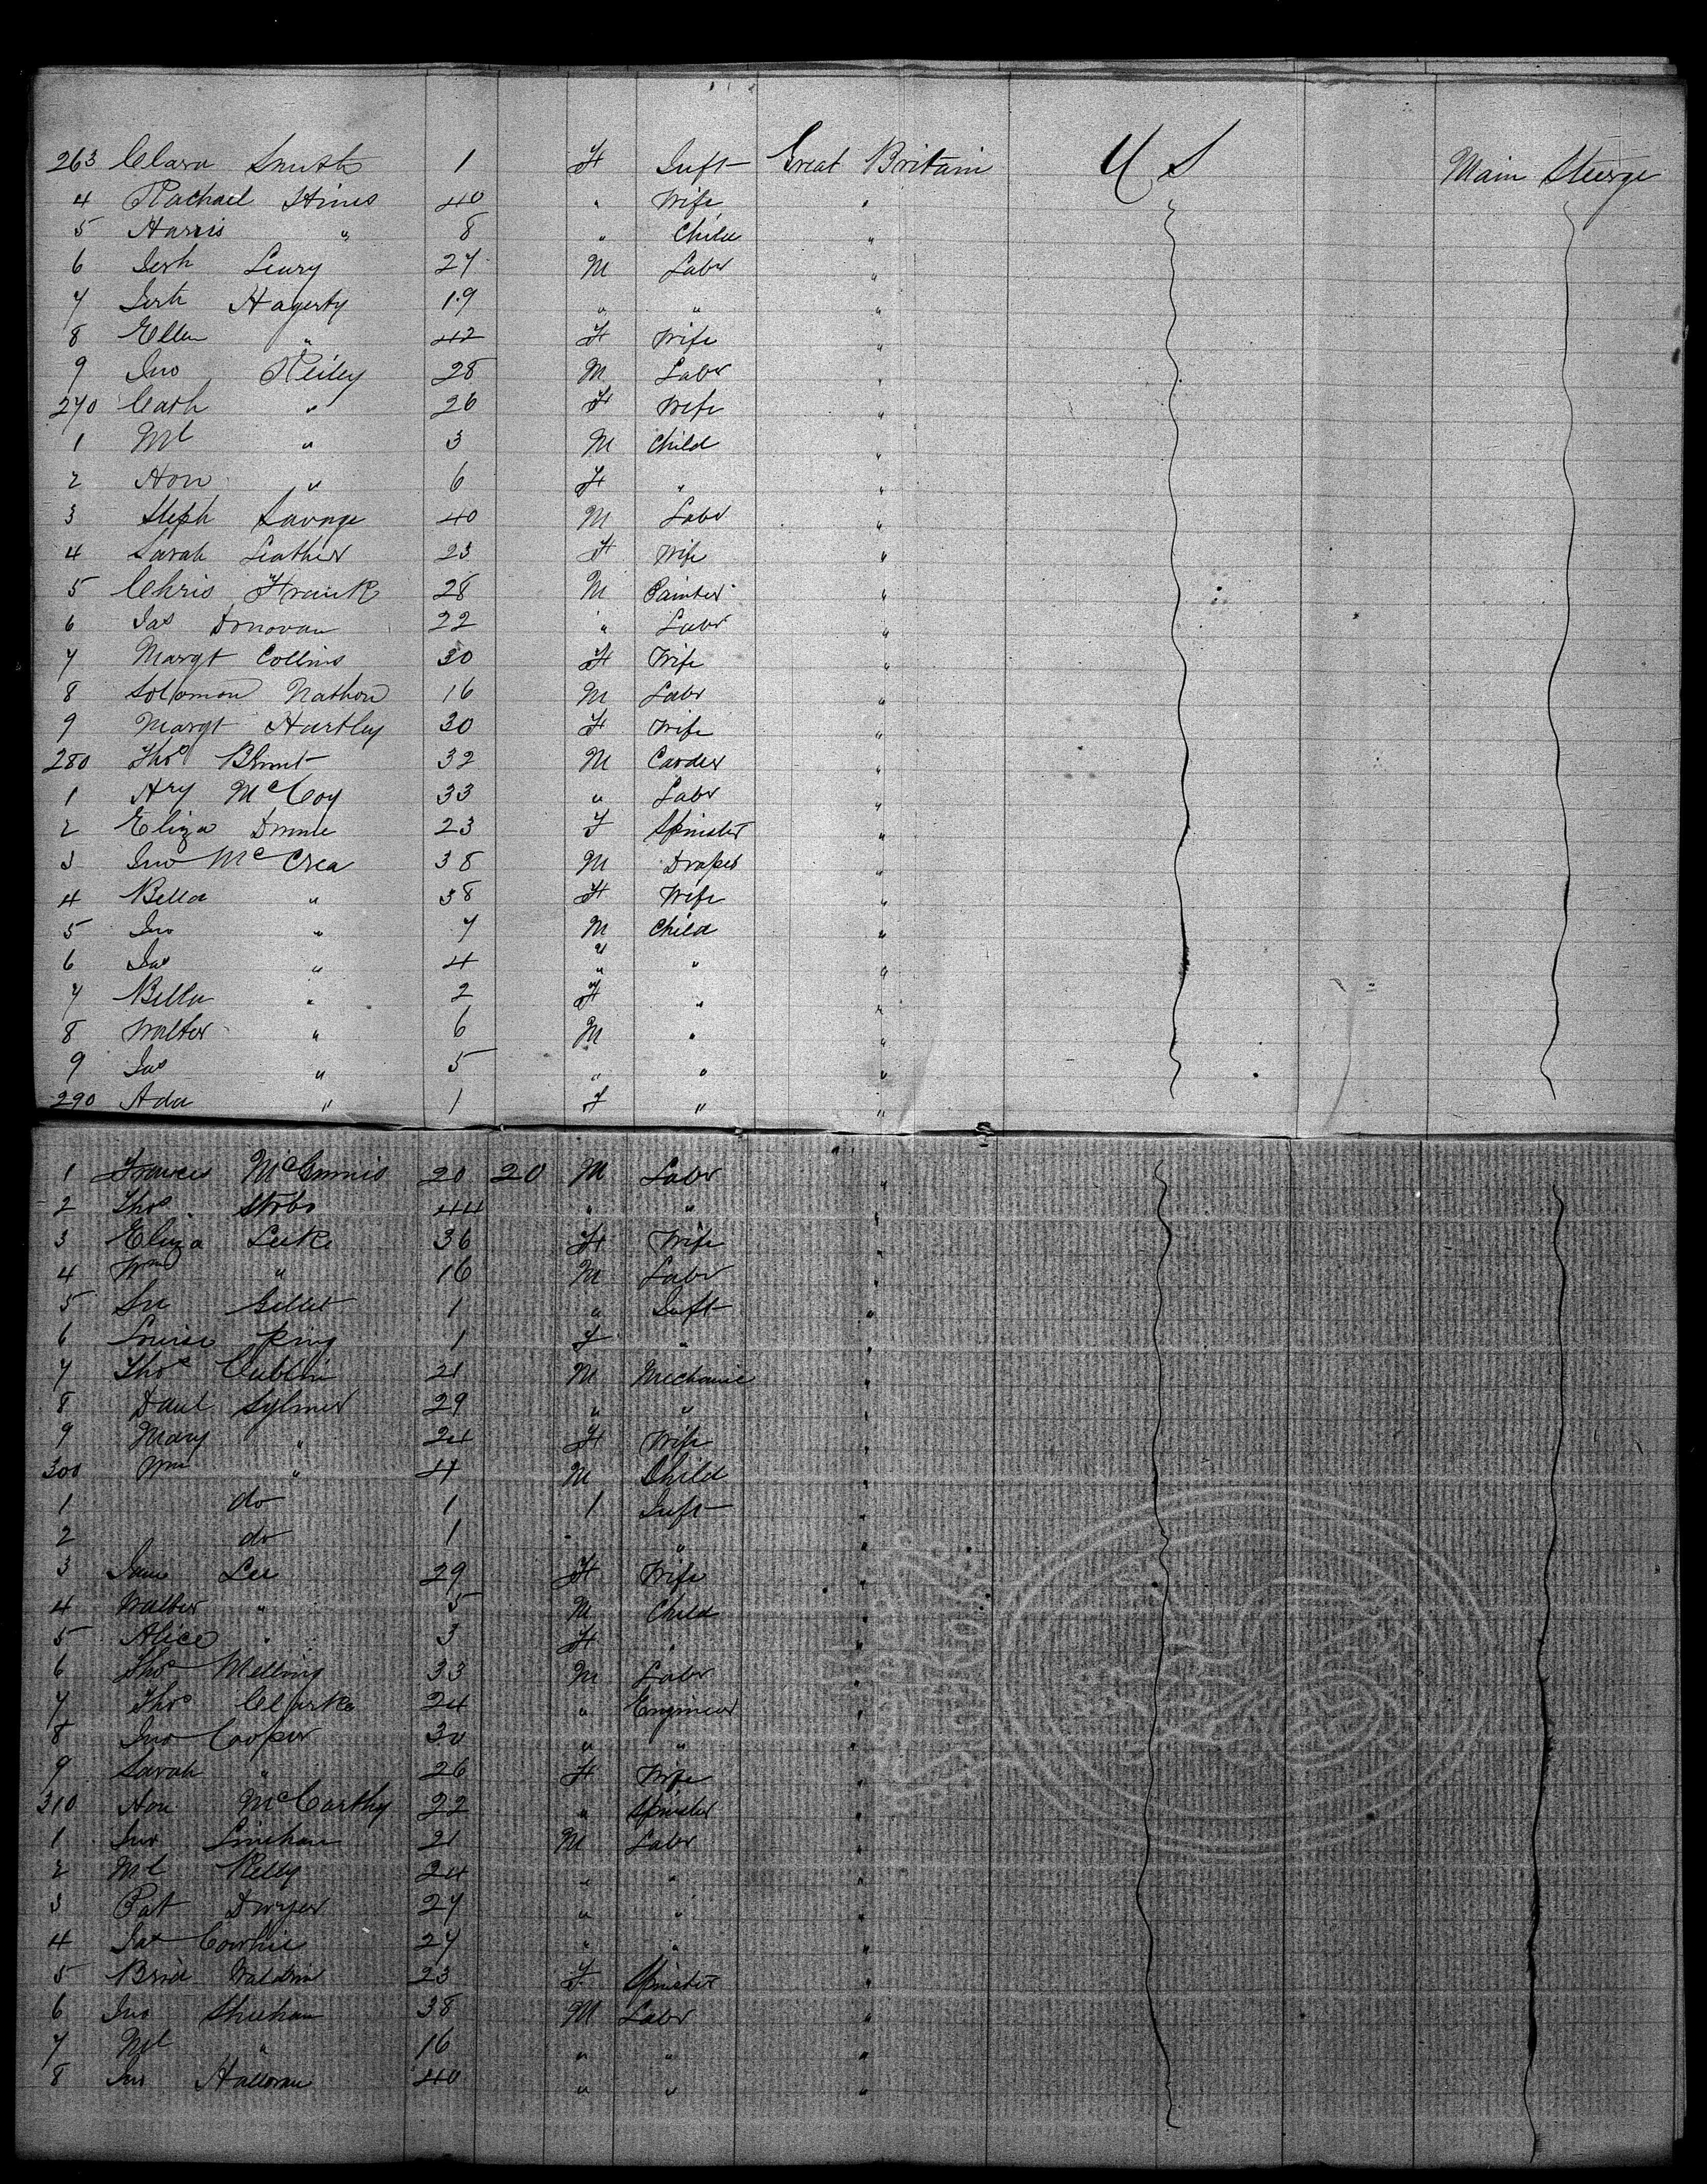 263 Clara Smith 1 F Inft Great Britain U S Main Steerge
4 Rachael Hines 40 " Wife "
5 Harris " 8 " Child "
6 Jerh Leary 27 M Labr "
7 Jerh Hagerty 19 " " "
8 Ellen " 42 F Wife "
9 Jno Reiley 28 M Labr "
270 Cath " 26 F Wife "
1 Ml " 3 M Child "
2 Hon " 6 F " "
3 Steph Savage 40 M Labr "
4 Sarah Leather 23 F Wife "
5 Chris Frank 28 M Painter "
6 Jas Donovan 22 " Labr "
7 Margt Collins 30 F Wife "
8 Solomon Nathan 16 M Labr "
9 Margt Hartley 30 F Wife "
280 Thos Blunt 32 M Carder "
1 Hry McCoy 33 " Labr "
2 Eliza 23 F Spinster "
3 Jno McCrea 38 M Draper "
4 Bella " 38 F Wife "
5 Jno " 7 M Child "
6 Jas " 4 " " "
7 Bella " 2 F " "
8 Walter " 6 M " "
9 Jas " 5 " " "
290 Ada " 1 F " "
1 Frances McGinnis 20 20 M Labr "
2 Thos Stobo 44 " " "
3 Eliza Leeke 36 F Wife "
4 Wm " 16 M Labr "
5 Gillet 1 " Inft "
6 Louise King 1 F " "
7 Thos Cubbin 21 M Mechanic "
8 Danl Sylmer 29 " " "
9 Mary " 24 F Wife "
300 Wm " 4 M Child "
1 do 1 1 Inft "
2 do 1 " "
3 Jane Lee 29 F Wife "
4 Walter " 5 M Child "
5 Alice " 3 F " "
6 Thos Melling 33 M Labr "
7 Thos Clarke 24 " Engineer "
8 Jno Cooper 30 " " "
9 Sarah " 26 F Wife "
310 Hon McCarthy 22 " Spinster "
1 Jno Linehan 21 M Labr "
2 Ml Kelly 24 " " "
3 Pat Dwyer 27 " " "
4 Jas Cowhie 27 " " "
5 Brid Waldron 23 F Spinster "
6 Jno Sheehan 38 M Labr "
7 Ml " 16 " " "
8 Jno Halloran 40 " " "